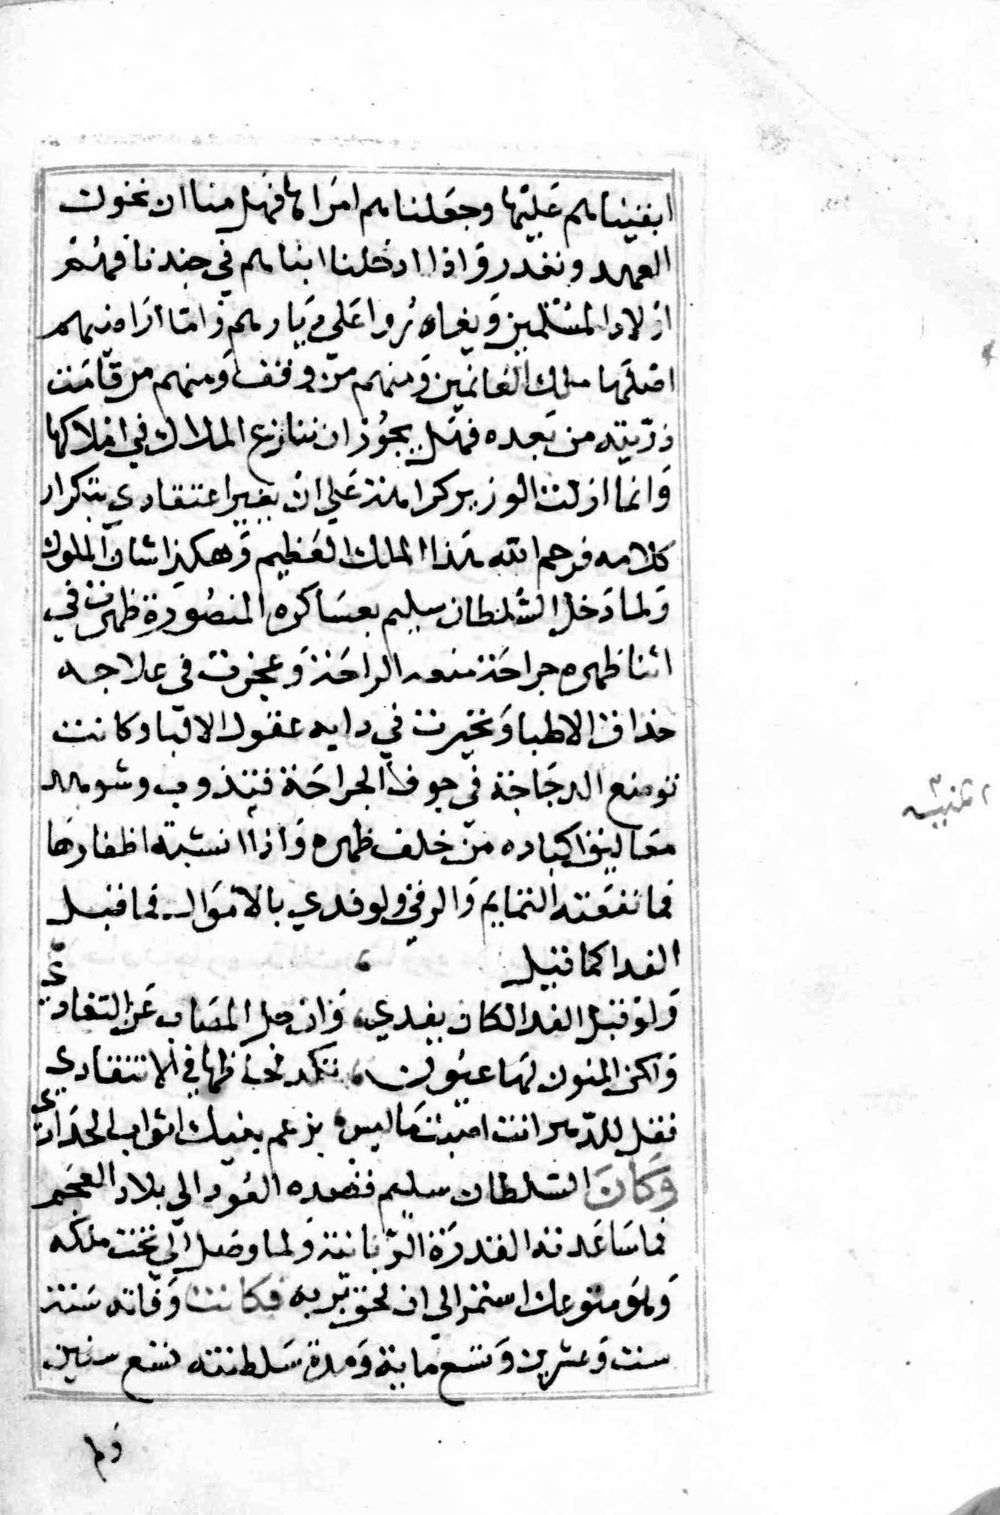 ابقيناهم عليها وجعلناهم امراها فهل منا ان نخون
العهد ونغدر واذا ادخلنا ابناهم في جندنا فهم
اولاد المسلمين ويغاروا على ديارهم واما اراضيهم
اصلها ملك الغانمين ومنهم من وقف ومنهم من قامت
ذريته من بعده فهل يجوز ان ننازع الملاك في املاكها
وانما ازلت الوزير كراهة على ان يغير اعتقادي بتكرار
كلامه فرحم الله هذا الملك العظيم وهكذا شان الملوك
ولما دخل السلطان سليم بعساكره المنصورة ظهرت في
اثنا ظهره جراحة منعه الراحة وعجزت في علاجه
حذاق الاطبا وتحيرت في دايه عقول الالبا وكانت
توضع الدجاجة في جوف الجراحة فتذوب وشوهد
معاليق اكباده من خلف ظهره واذا انشبت اظفارها
فما نفعته التمايم والرقى ولو فدي بالاموال فما قبل
الفدا كما قيل
ولو قبل الفدا لكان يفدي، وان جل المصاب عن التفادي
ولكن المنون لها عيون، تكد لحاظها في الانتقادي
فقل للدهر انت اصبت فالبس، بزعم بنيك اثواب الحدادي
وكان السلطان سليم قصده العود الى بلاد العجم
فما ساعدته القدرة الربانية ولما وصل الى تخت ملكه
وهو متوعك استمر الى ان لحق بربه فكانت وفاته سنة
ست وعشرين وتسع ماية ومدة سلطنته تسع سنين
ولم
المنيه